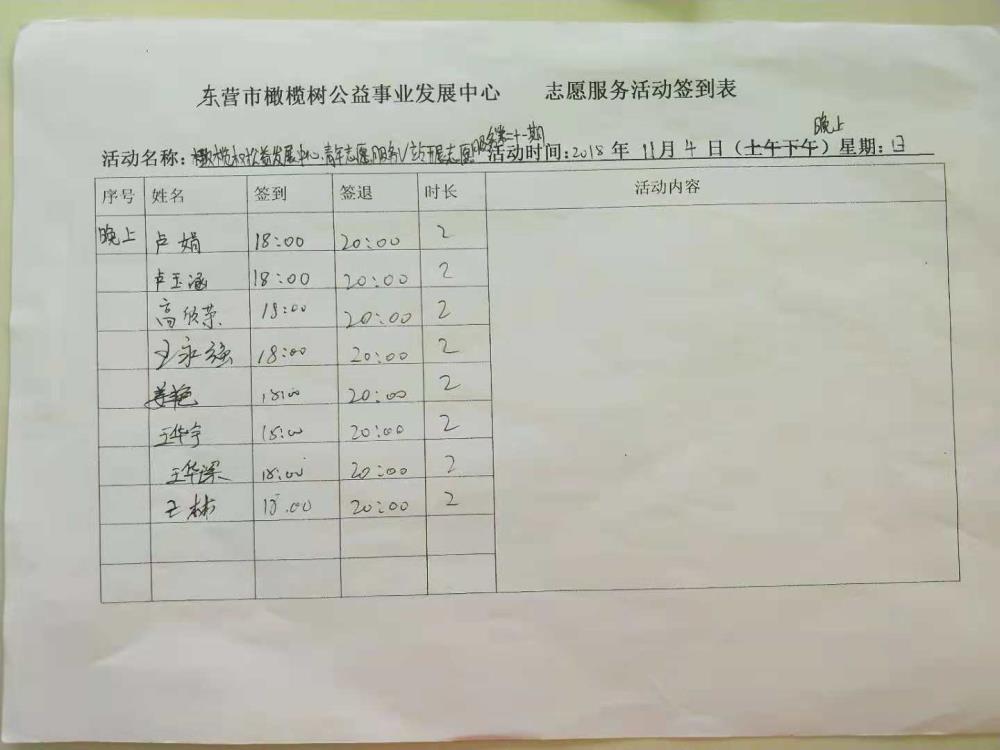 东营市橄榄树公益事业发展中心 志愿服务活动签到表
晚上
活动名称:橄榄树公益发展中心青年志愿服务V站开展志愿服务第二十一期 活动时间:2018年 11月 4 日(上午下午)星期:日
序号 姓名 签到 签退 时长 活动内容
晚上 卢娟 18:00 20:00 2
卢玉涵 18:00 20:00 2
高欣荣 18:00 20:00 2
王永强 18:00 20:00 2
姜艳 18:00 20:00 2
王华宇 18:00 20:00 2
王华深 18:00 20:00 2
王林 18:00 20:00 2